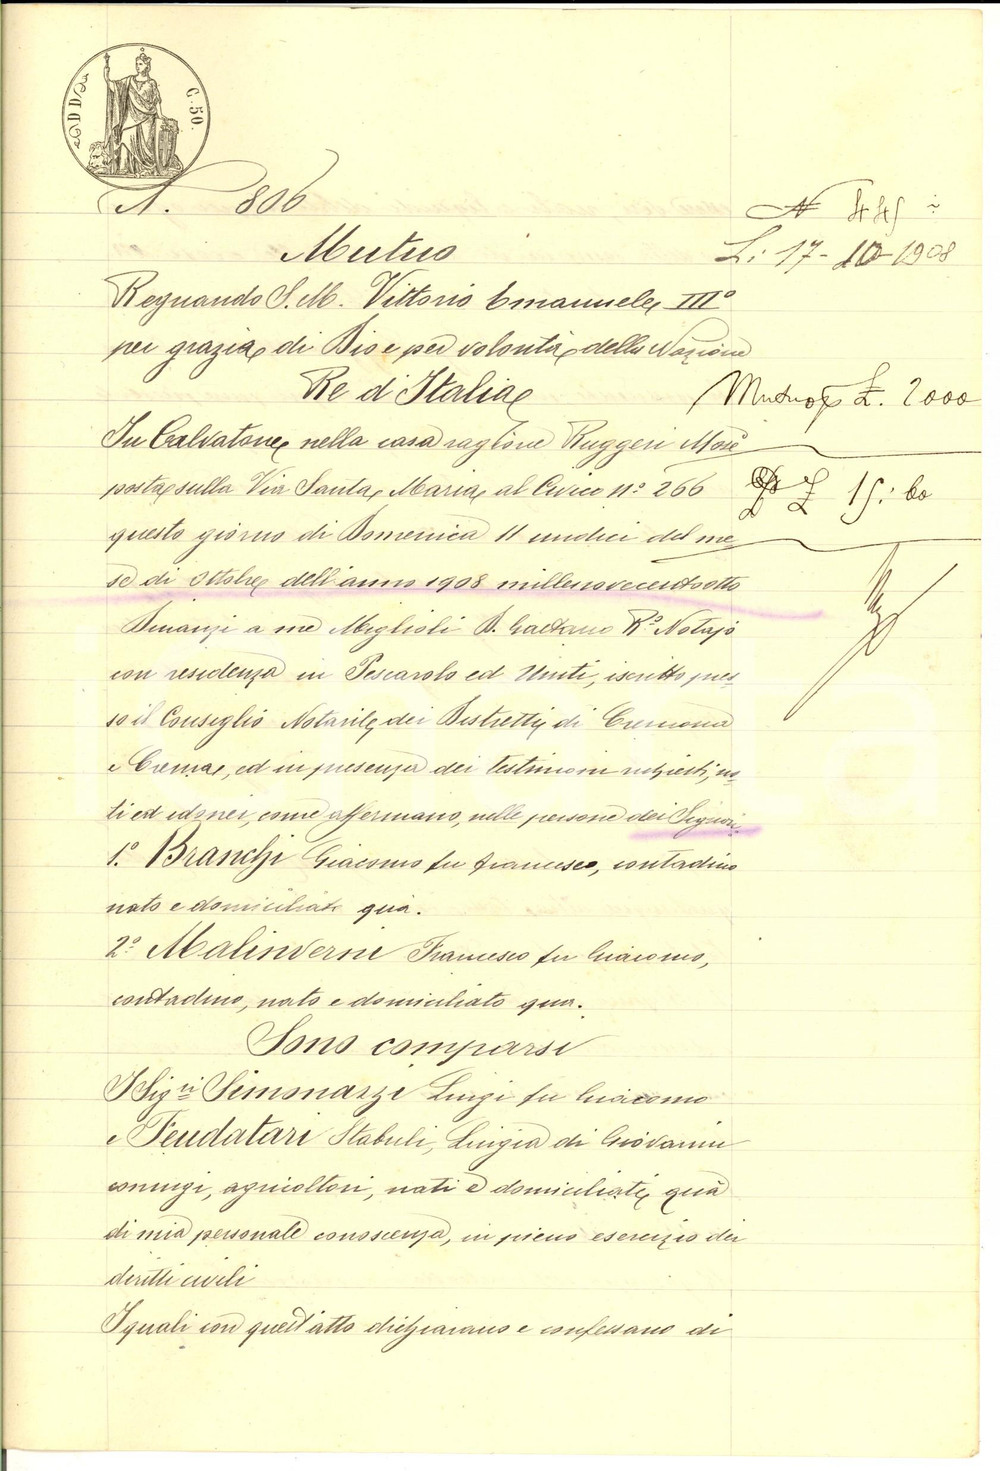 C. 50.
N. 806
N 445
Li 17-10-1908
Mutuo
Regnando S. M. Vittorio Emanuele III°
per grazia di Dio e per volontà della Nazione
Re d'Italia
Mutuo £. 2000
In Calvatone, nella casa ragione Ruggeri Mosè
posta sulla Via Santa Maria al Civico N° 266
£ 15:60
questo giorno di Domenica 11 undici del me-
se di Ottobre dell'anno 1908 millenovecentootto
Dinanzi a me Miglioli D. Gaetano R° Notajo
con residenza in Pescarolo ed Uniti, iscritto pres-
so il Consiglio Notarile dei Distretti di Cremona
e Crema, ed in presenza dei testimoni richiesti, no-
ti ed idonei, come affermano, nelle persone dei Signori:
1° Branchi Giacomo fu Francesco, contadino
nato e domiciliato quà.
2° Malinverni Francesco fu Giacomo,
contadino, nato e domiciliato qua.
Sono comparsi
I Sig.ri Simonazzi Luigi fu Giacomo
e Feudatari Stabuli, Luigia di Giovanni
coniugi, agricoltori, nati e domiciliati quà
di mia personale conoscenza, in pieno esercizio dei
diritti civili
I quali con quest'atto dichiarano e confessano di